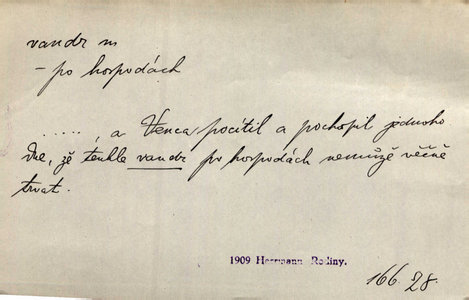 vandr m
– po hospodách
....., a Venca pocítil a pochopil jednoho
dne, že tenhle vandr po hospodách nemůže věčně
trvat.
1909 Herrmann Rodiny.
166.28.